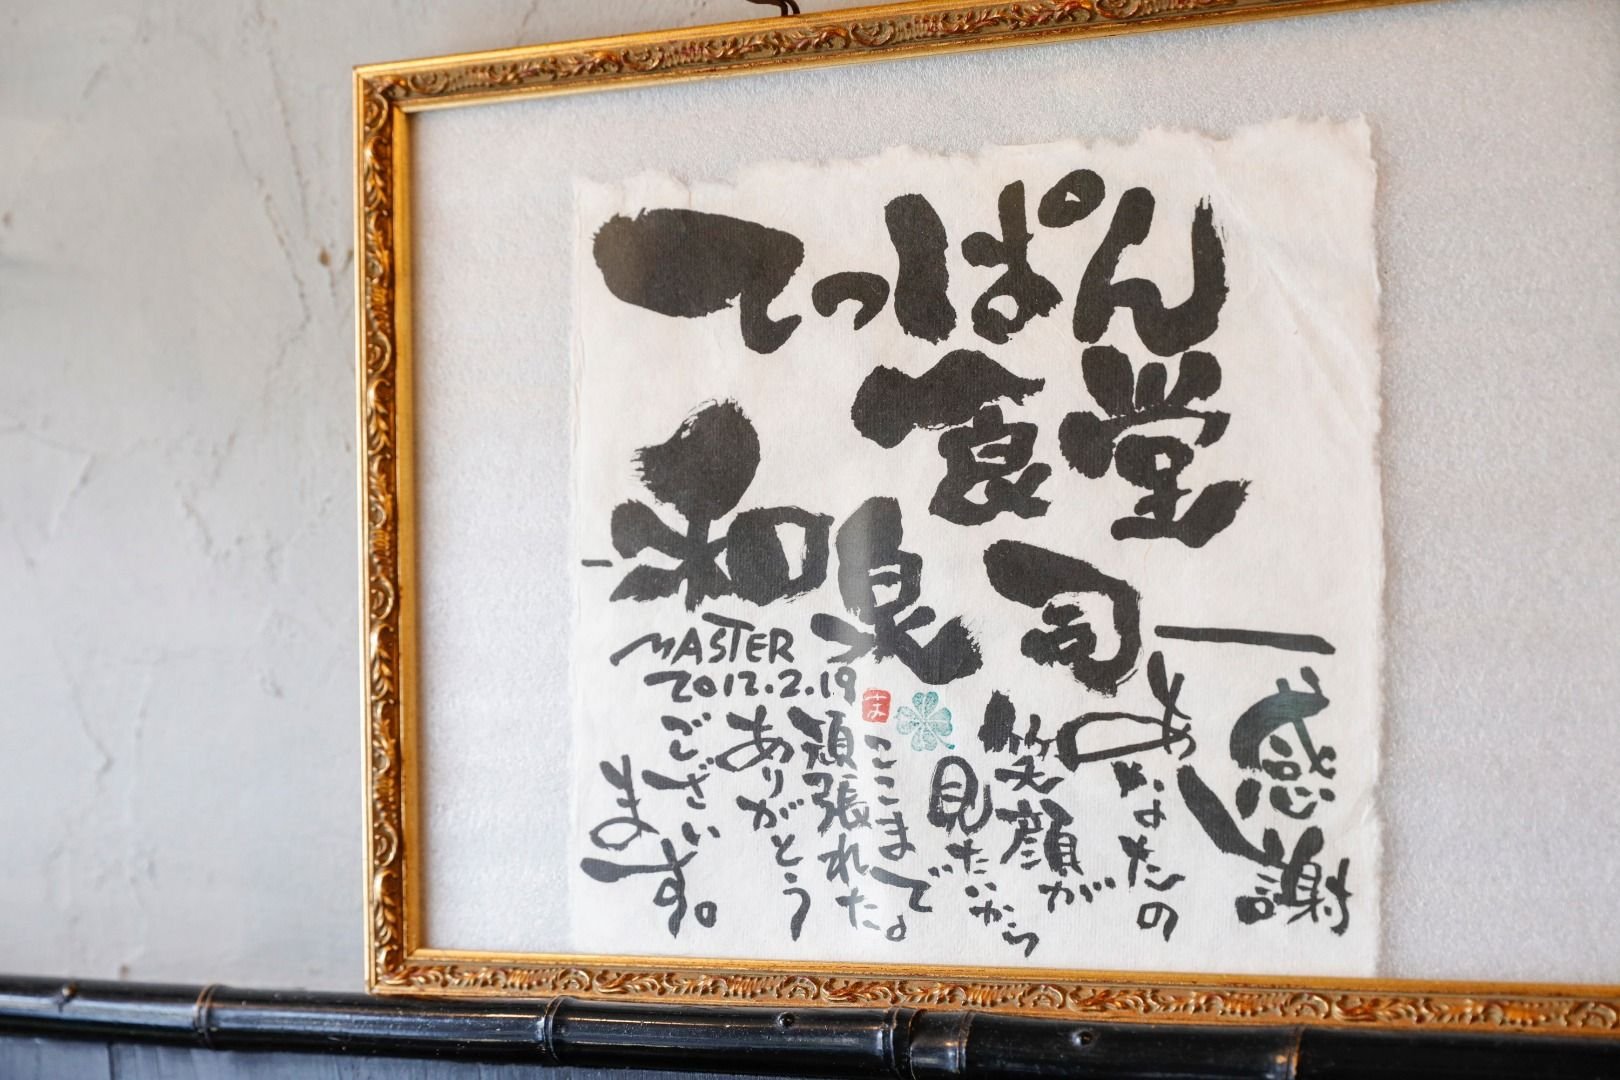 てっぱん
食堂
和泉司
MASTER
2012.2.19
感謝
あなたの
笑顔が
見たいから
ここまで
頑張れた。
ありがとう
ござい
ます。